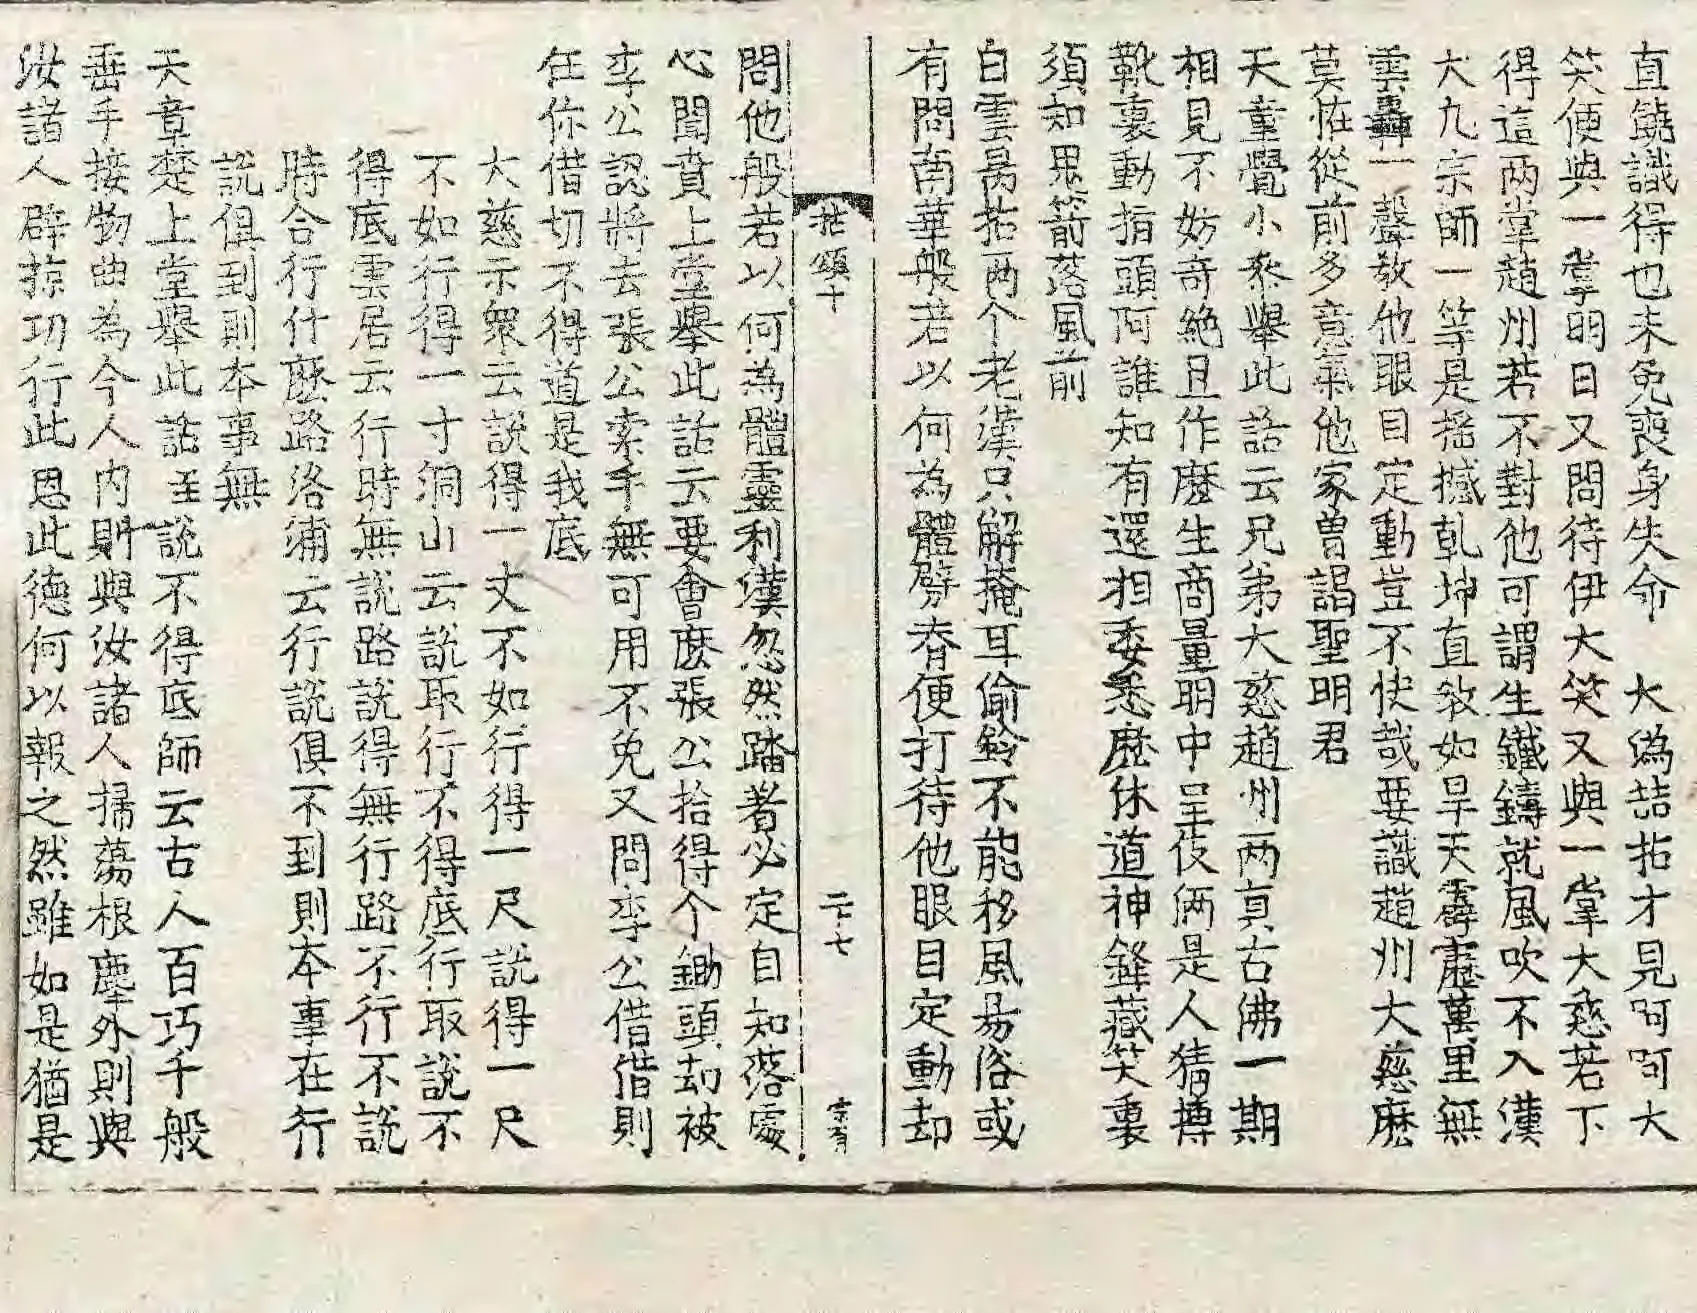 直饒識得也未免喪身失命　大溈喆拈才見呵呵大
笑便與一掌明日又問待伊大笑又與一掌大慈若下
得這兩掌趙州若不對他可謂生鐵鑄就風吹不入漢
大凡宗師一等是搖撼乹坤直教如旱天霹靂萬里無
雲轟一聲教他眼目定動豈不快哉要識趙州大慈麽
莫恠從前多意氣他家曽謁聖明君
天童覺小叅舉此語云兄弟大慈趙州兩真古佛一期
相見不妨奇絶且作麽生商量明中呈伎倆是人猜摶
靴裏動指頭阿誰知有還相委悉麽休道神鋒藏笑裏
須知思箭落風前
白雲昺拈兩个老漢只解掩耳偷鈴不能移風易俗或
有問南華般若以何為體劈脊便打待他眼目定動却
拈頌十　二十七　宗有
問他般若以何為體靈利漢忽然踏著必定自知落處
心聞賁上堂舉此話云要會麽張公拾得个鋤頭却被
李公認將去張公索手無可用不免又問李公借借則
任你借切不得道是我底
大慈示衆云說得一丈不如行得一尺說得一尺
不如行得一寸洞山云說取行不得底行取說不
得底雲居云行時無說路說得無行路不行不說
時合行什麽路洛浦云行說俱不到則本事在行
說俱到則本事無
天章楚上堂舉此話至說不得底師云古人百巧千般
垂手接物曲為今人內則與汝諸人掃蕩根塵外則與
汝諸人辟掠功行此恩此德何以報之然雖如是猶是